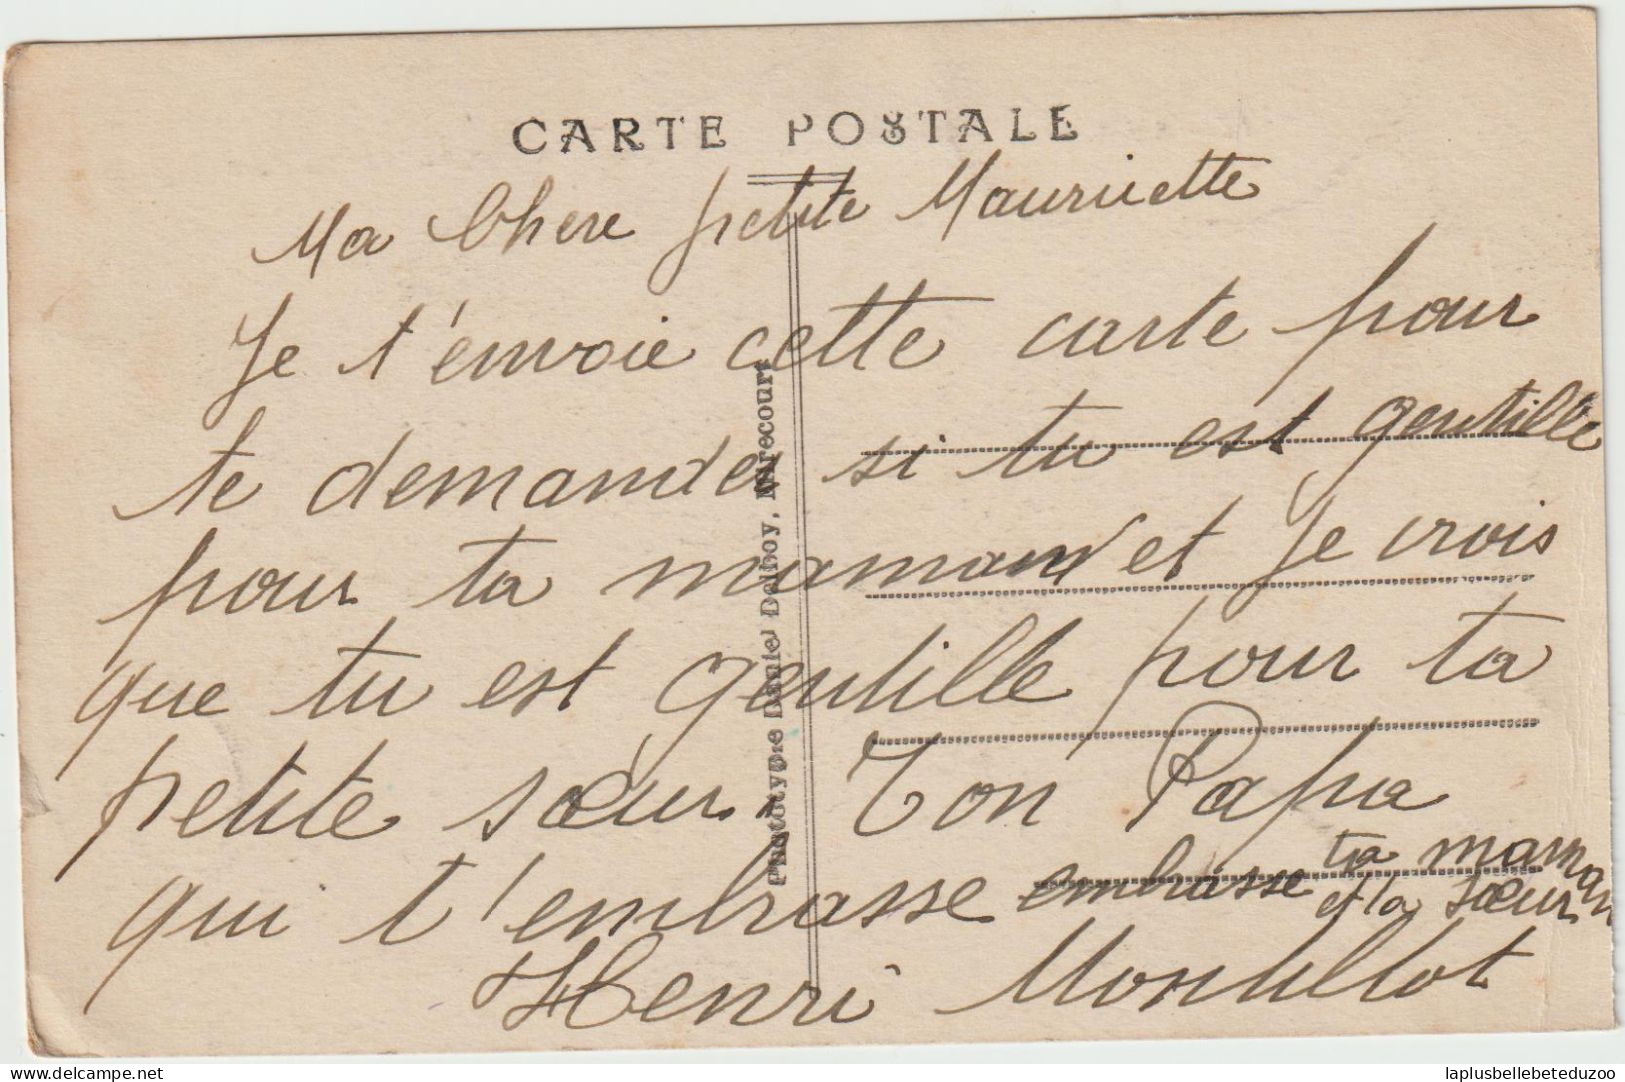 CARTE POSTALE
Ma Chere petite Mauricette
Je t'envoie cette carte pour
te demander si tu est gentille
pour ta maman et je crois
que tu est gentille pour ta
petite sœur. Ton Papa
qui t'embrasse embrasse ta maman
et ta sœur
Henri Montillot
Phototypie Daniel Delboy, Mirecourt
delcampe.net
laplusbellebeteduzoo